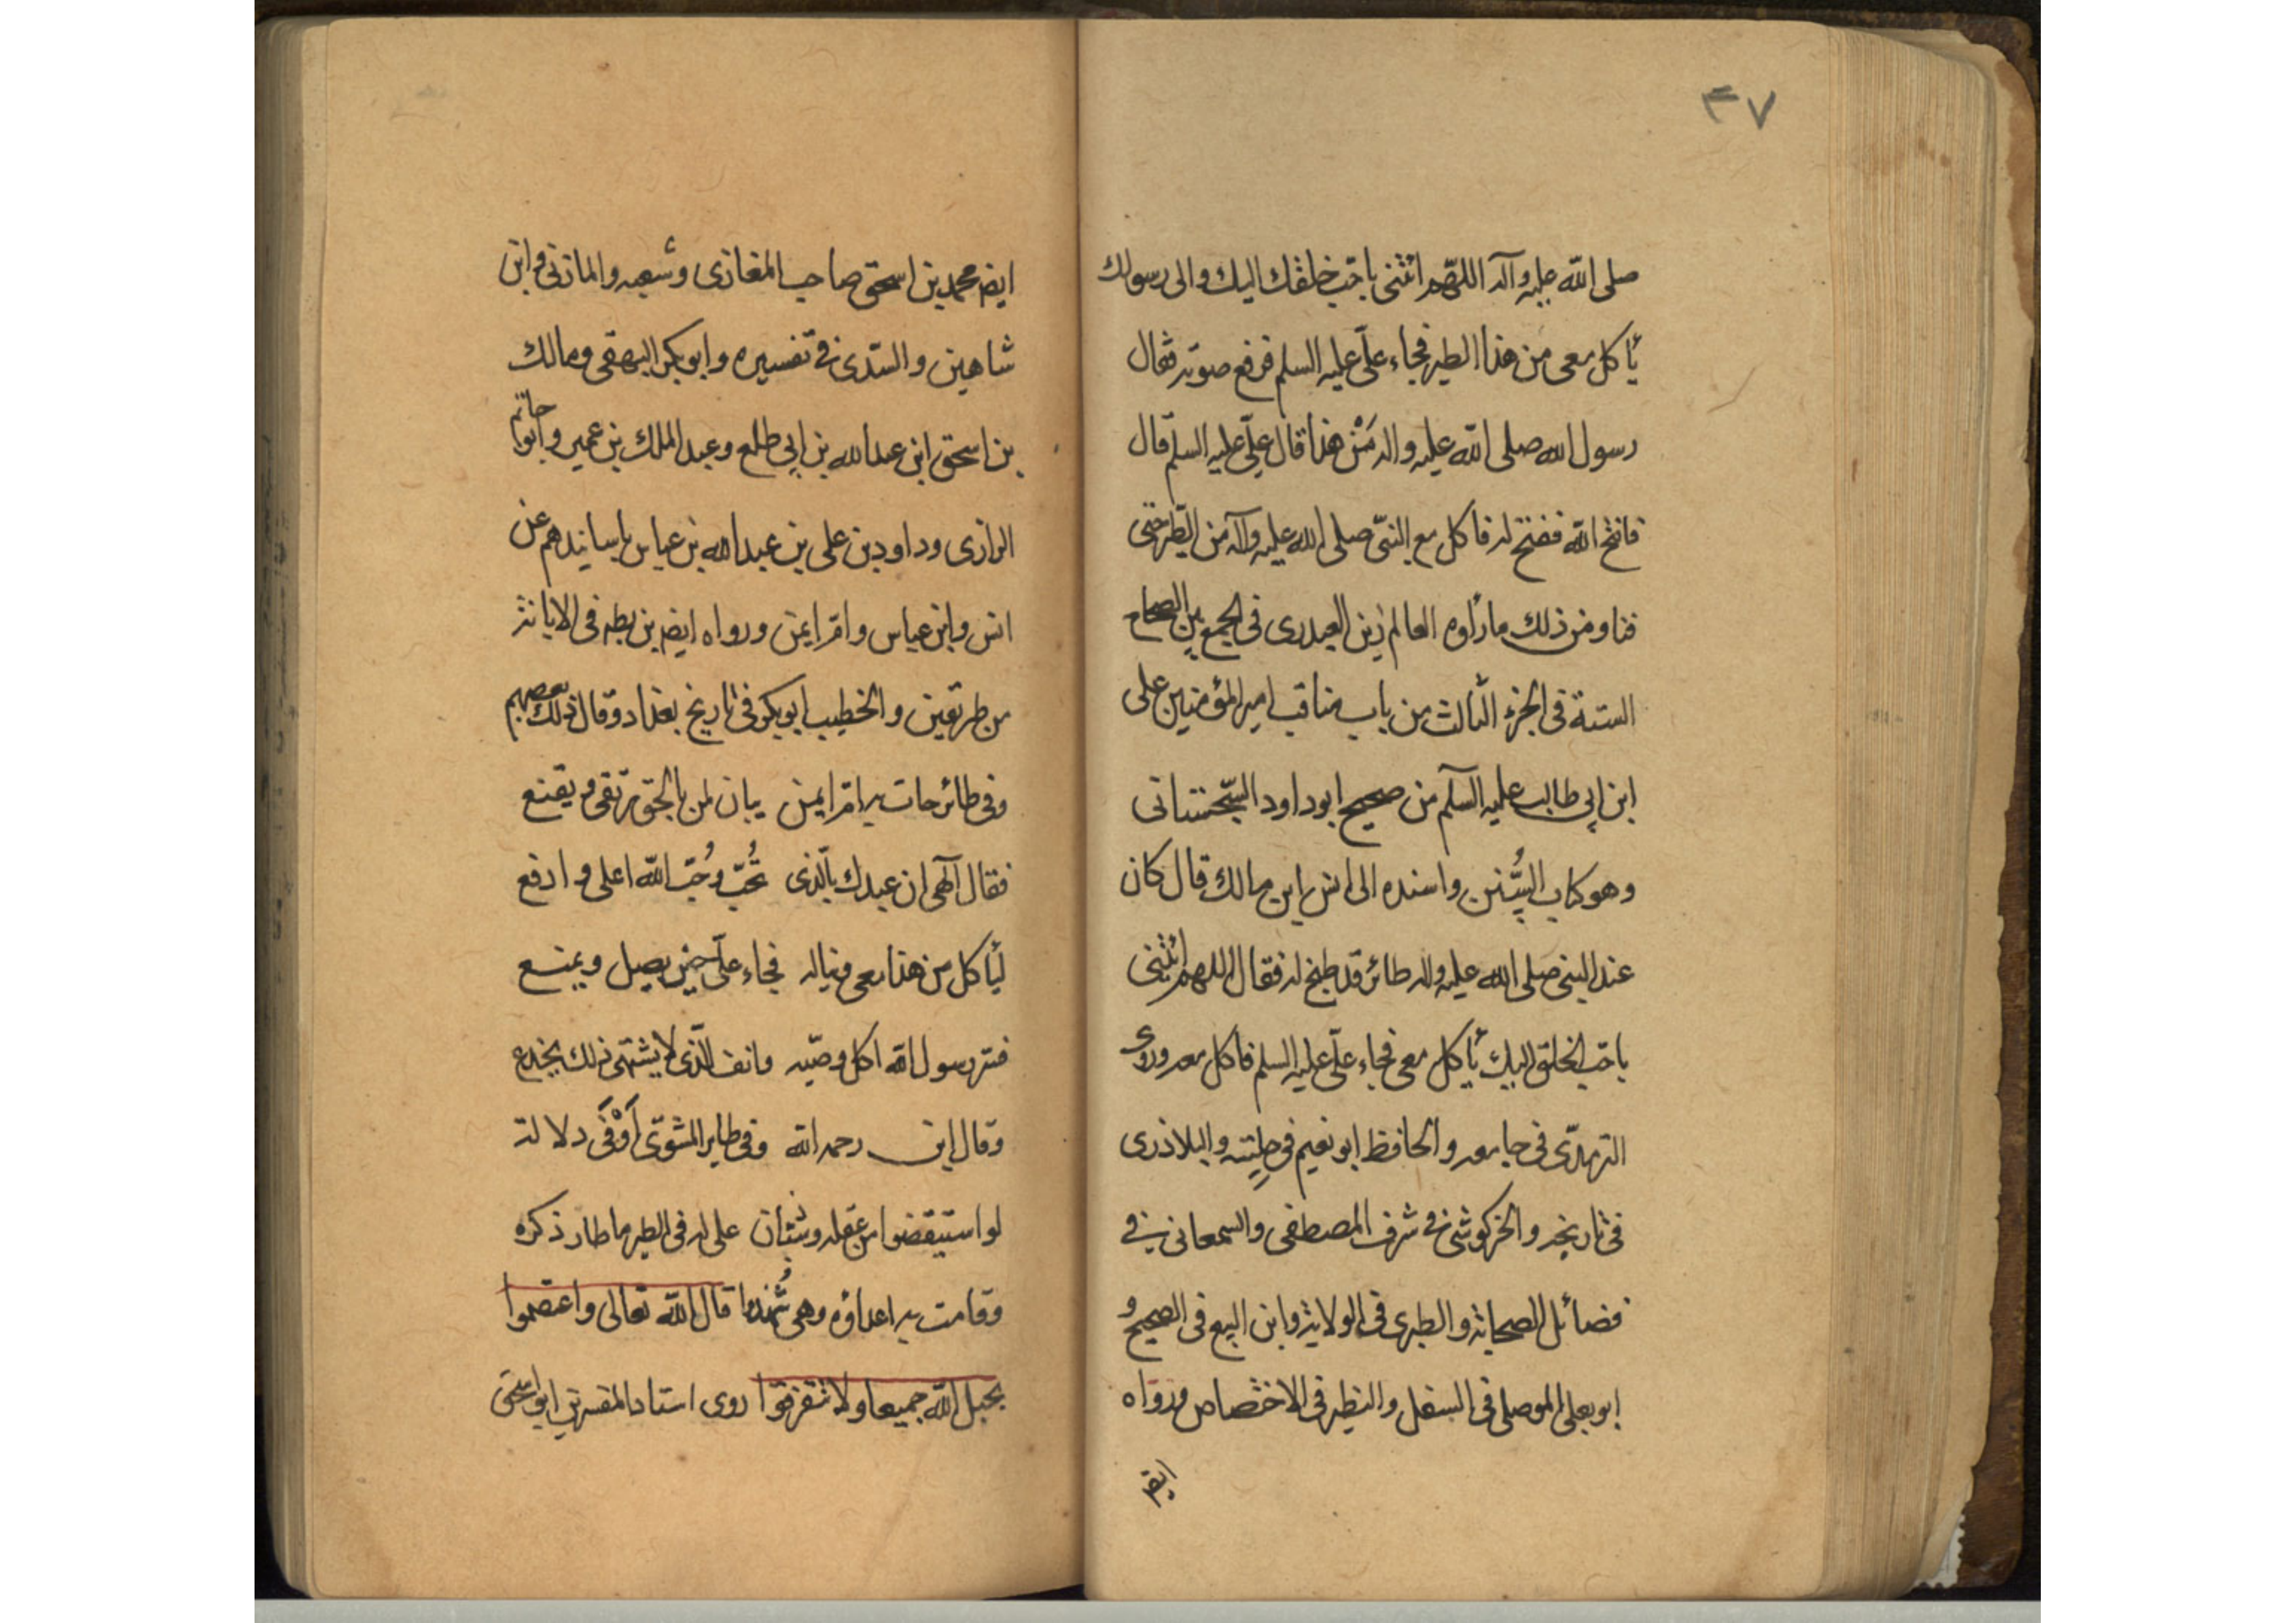 ۴۷
صلى الله عليه وآله اللهم ائتنى باحب خلقك اليك والى رسولك
يأكل معى من هذا الطير فجاء على عليه السلم فرفع صوته فقال
رسول الله صلى الله عليه واله مَنْ هذا قال على عليه السلم قال
فافتح الله ففتح له فاكل مع النبى صلى الله عليه وآله من الطير حتى
فنا ومن ذلك ما رواه العالم زين العبدرى فى الجمع بين الصحاح
الستة فى الجزء الثالث من باب مناقب امير المؤمنين على
ابن ابى طالب عليه السلم من صحيح ابو داود السجستانى
وهو كتاب السُّنن واسنده الى انس ابن مالك قال كان
عند النبى صلى الله عليه واله طائر قد طبخ له فقال اللهم ائتنى
باحب الخلق اليك يأكل معى فجاء على عليه السلم فاكل معه وروى
الترمذى فى جامعه والحافظ ابو نعيم فى حليته والبلاذرى
فى تاريخه والخركوشى فى شرف المصطفى والسمعانى فى
فضائل الصحابة والطبرى فى الولاية وابن البيع فى الصحيح و
ابو يعلى الموصلى فى السند والنطنز فى الاختصاص ورواه
ايض
ايض محمد بن اسحق صاحب المغازى وشعبه والمازنى وابن
شاهين والسدى فى تفسيره وابو بكر البيهقى ومالك
بن اسحق ابن عبدالله بن ابى طلحه وعبد الملك بن عمير وابو حاتم
الرازى وداود بن على بن عبدالله بن عباس باسانيدهم عن
انس وابن عباس وام ايمن ورواه ايض بن بطه فى الابانة
من طريقين والخطيب ابو بكر فى تاريخ بغداد وقال ذلك بعضهم
وفى طائر جاءت به ام ايمن بيان لمن بالحق يرتقى ويقنع
فقال آلهى ان عبدك بالذى تُحب وحُب الله اعلى وارفع
ليأكل من هذا معى ويناله فجاء على حين يصل ويمنع
فسر رسول الله اكل وصيه وانف الذى لا يشتهى ذلك يجدع
وقال ابن رحمه الله وفى طاير المشوى أوْفَى دلالة
لو استيقضوا من عقله وسُبات على له فى الطير ما طار ذكره
وقامت به اعداؤه وهى شُهَّدا قال الله تعالى واعتصموا
بحبل الله جميعا ولا تفرقوا روى استاد المفسرين ابو اسحق